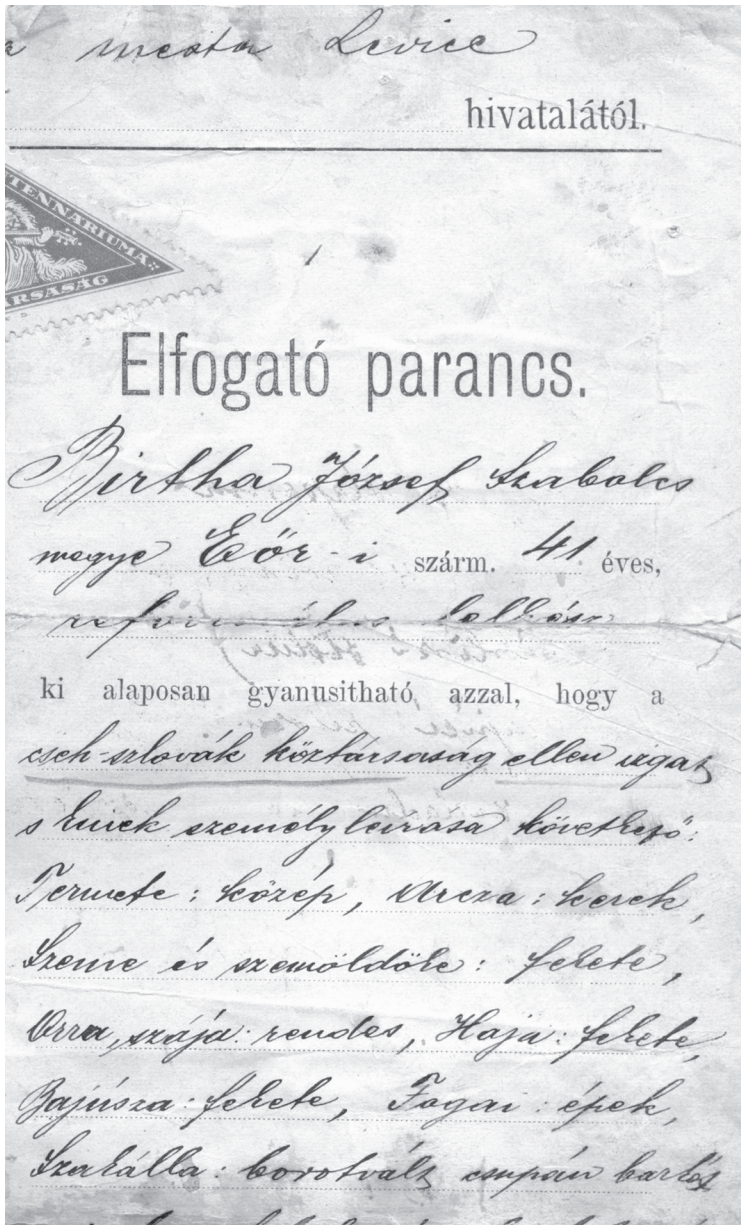 mesta Levice
hivatalától.
TENNÁRIUMA::
ÁRSASÁG
Elfogató parancs.
Birtha József Szabolcs
megye Eőr-i szárm. 41 éves,
református lelkész
ki alaposan gyanusitható azzal, hogy a
cseh-szlovák köztársaság ellen izgat
s kinek személyleirása következő:
Termete: közép, Arcza: kerek,
Szeme és szemöldöke: fekete,
Orra, szája: rendes, Haja: fekete,
Bajúsza: fekete, Fogai: épek,
Szakálla: borotvált, csupán